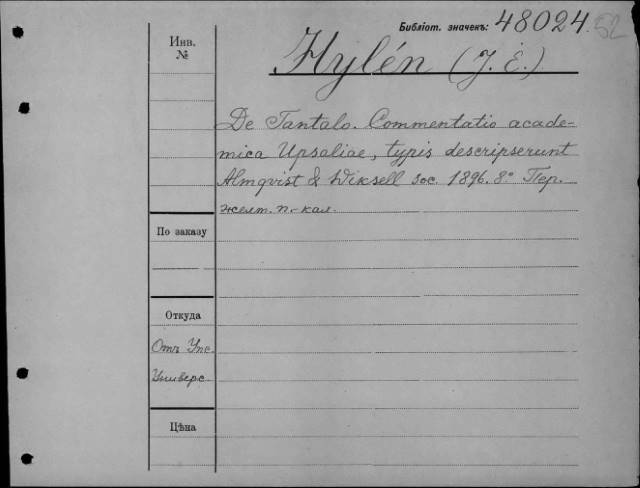 Библіот. значекъ: 48024. 52
Инв.
№
Hylén (J. E.)
De Tantalo. Commentatio acade-
mica Upsaliae, typis descripserunt
Almqvist & Wiksell soc. 1896. 8° Пер.
желт. п.-кал.
По заказу
Откуда
Отъ Упс.
Универс.
Цѣна